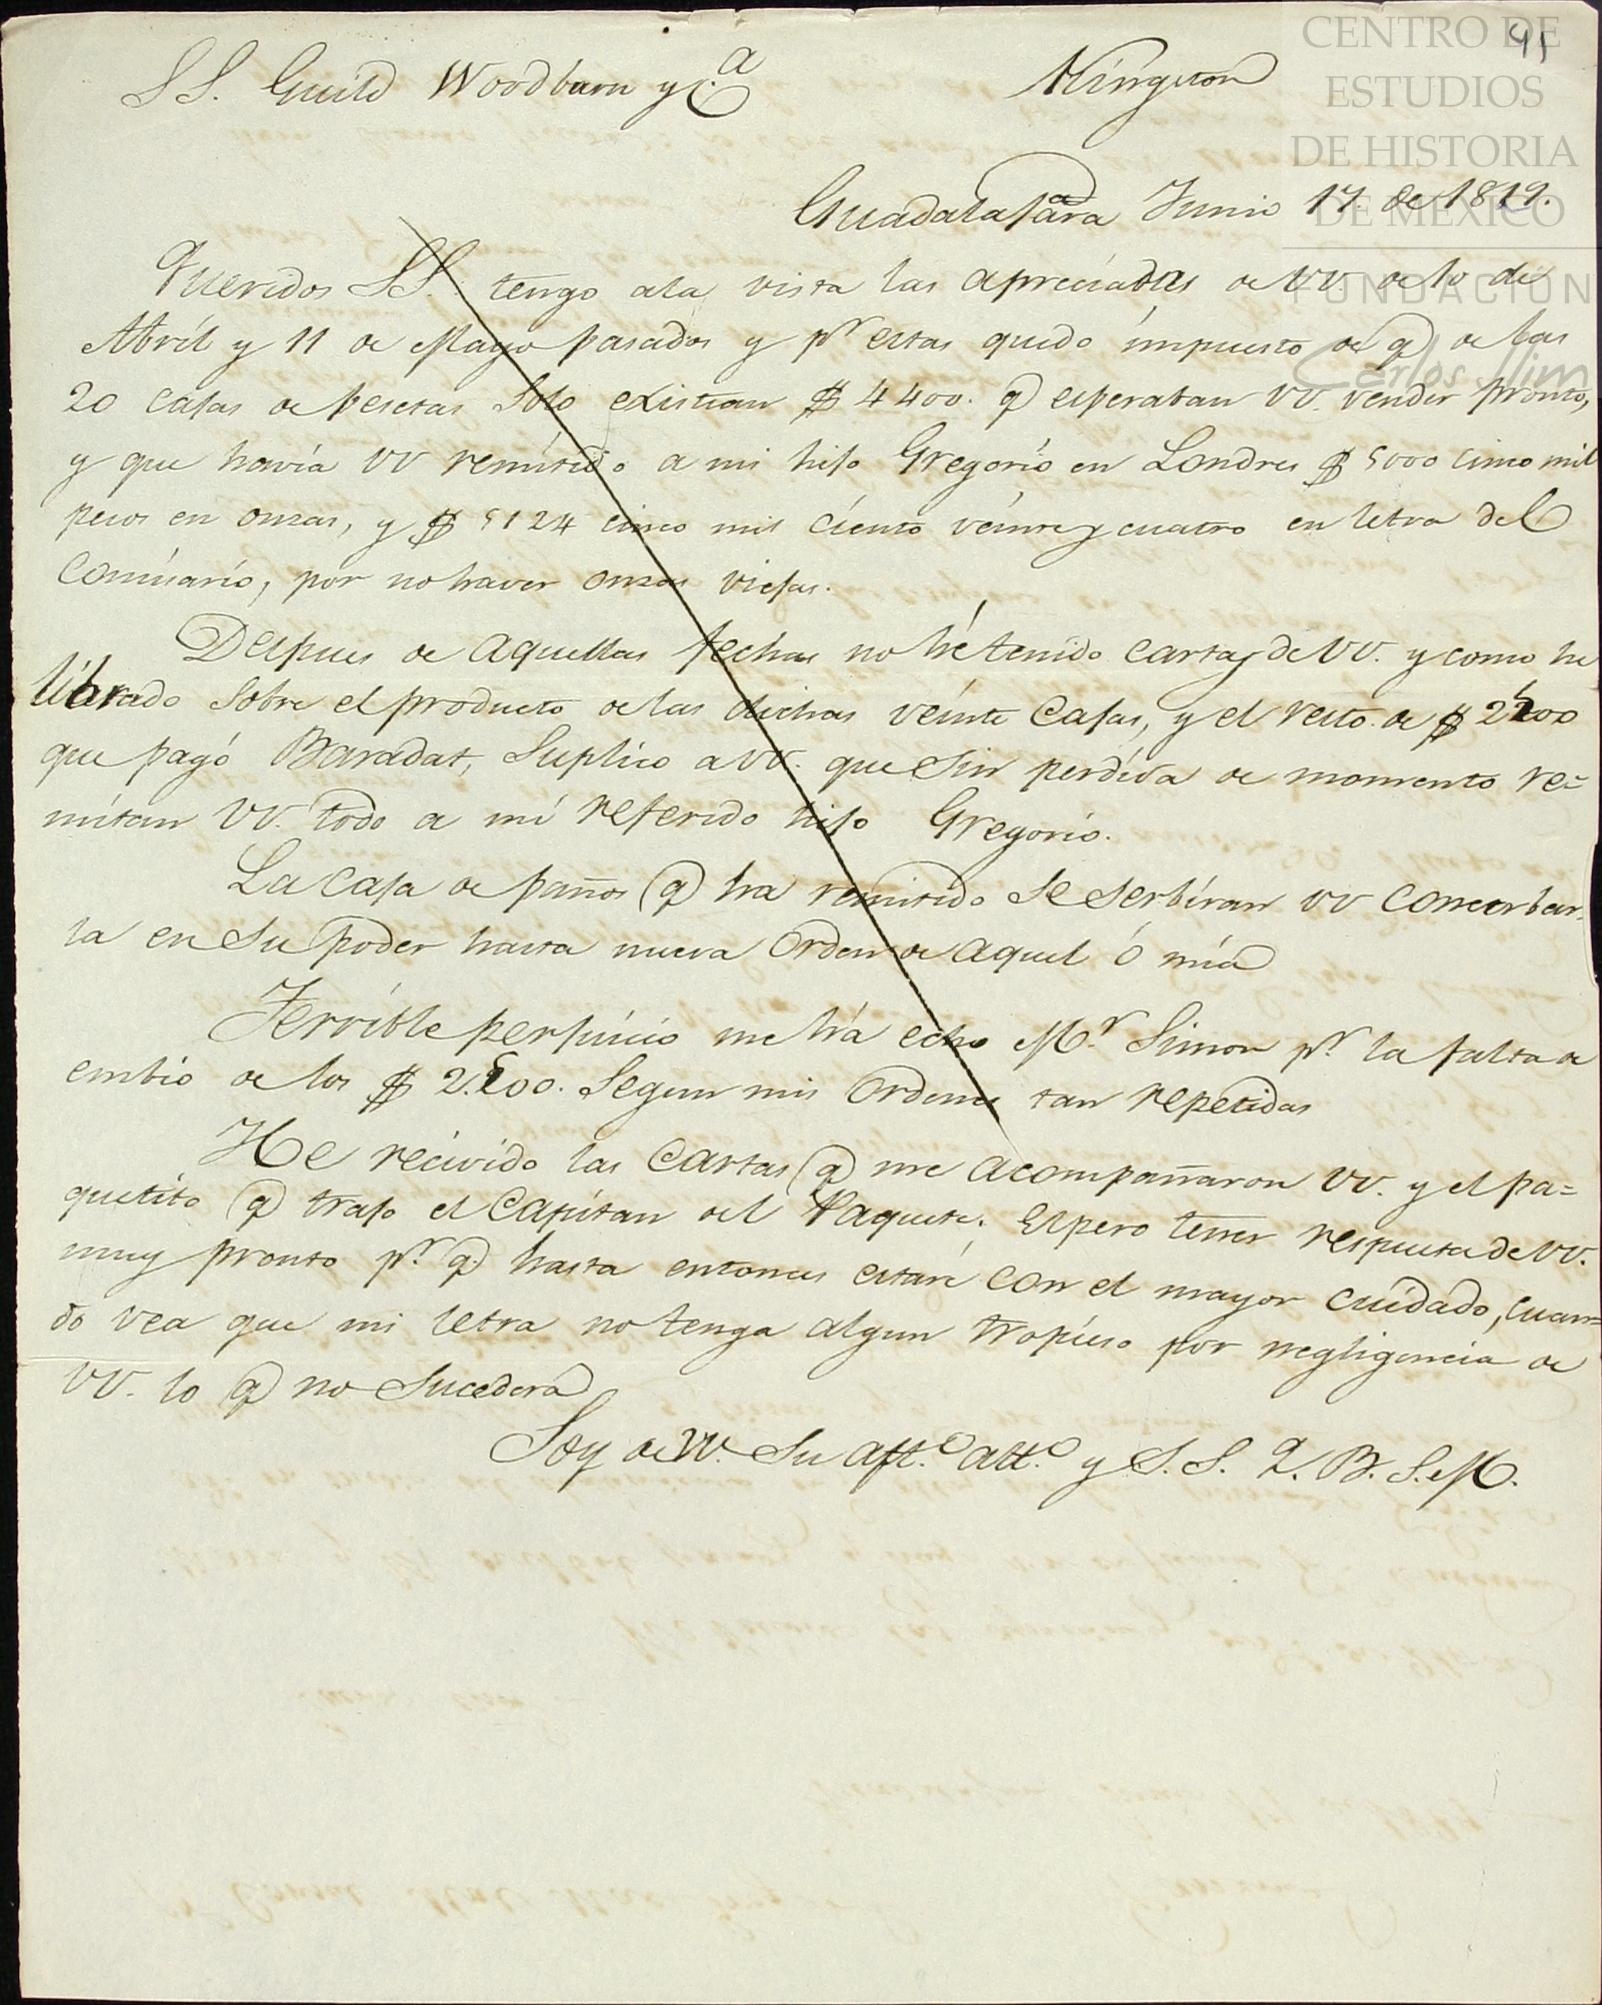 91
CENTRO DE
ESTUDIOS
DE HISTORIA
DE MÉXICO
FUNDACIÓN
Carlos Slim
SS. Guild Woodburn y C.a Kingston
Guadalajara Junio 17. de 1819.
Queridos SS. tengo ala vista las apreciables de VV. de 10 de
Abril y 11 de Mayo pasados y pr estas quedo impuesto de q de las
20 cajas de pesetas solo existian $ 4400. q esperaban VV. vender pronto,
y que havia VV remitido a mi hijo Gregorio en Londres $ 5000 cinco mil
pesos en onzas, y $ 5124 cinco mil ciento veinte y cuatro en letra del
Comisario, por no haver onzas viejas.
Despues de aquellas fechas no hé tenido cartas de VV. y como he
librado sobre el producto de las dichas veinte cajas, y el resto de $ 2500
que pagó Baradat, suplico a VV. que sin perdida de momento re=
mitan VV. todo a mi referido hijo Gregorio.
La caja de paños q ha remitido se serbiran VV conserbar-
la en su poder hasta nueva orden de aquel ó mia
Terrible perjuicio me há echo Mr. Simon pr. la falta de
embio de los $ 2.500. segun mis ordenes tan repetidas
He recivido las cartas q me acompañaron VV. y el pa=
quetito q trajo el Capitan del Paquete. Espero tener respuesta de VV.
muy pronto pr. q. hasta entonces estaré con el mayor cuidado, cuan=
do vea que mi letra no tenga algun tropieso por negligencia de
VV. lo q no sucederá
Soy de VV. su aft.o att.o y S. S. Q. B. S. M.